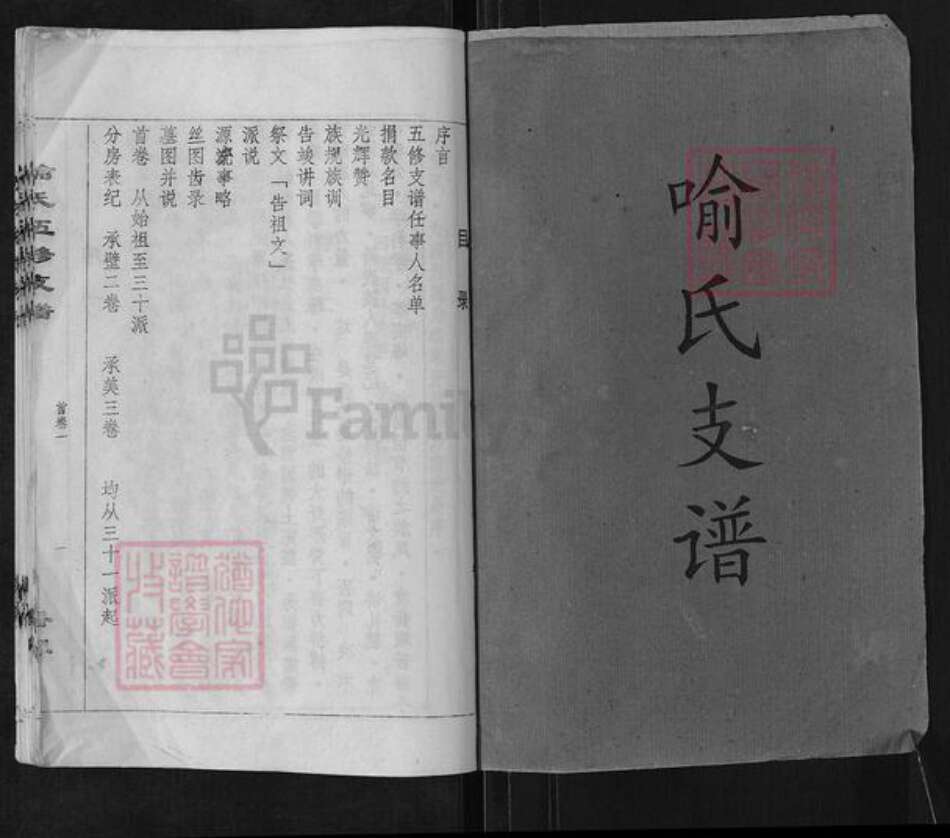 喻氏支谱
目录
序言
五修支谱任事人名单
捐款名目
光辉赞
族规族训
告竣讲词
祭文「告祖文」
派说
源流事略
丝图齿录
墓图并说
首卷 从始祖至三十派
分房表纪 承璧二卷 承美三卷 均从三十一派起
喻氏五修支谱
首卷一
一
谱学会
收藏
Famil